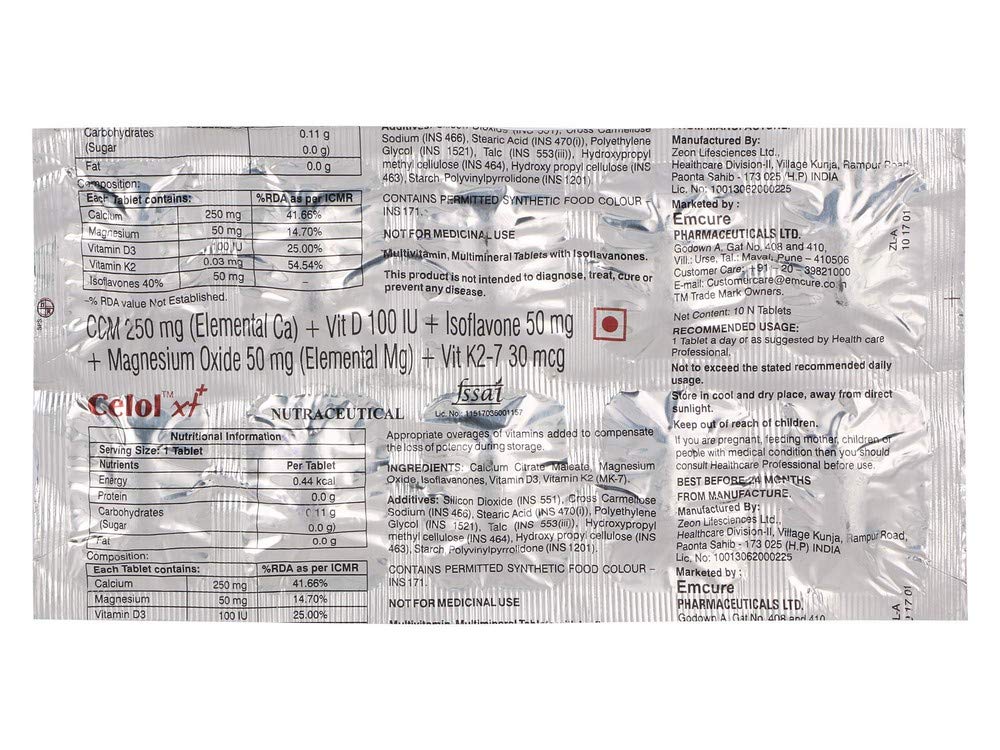 Carbohydrates 0.11 g
(Sugar 0.0 g)
Fat 0.0 g
Composition:
Each Tablet contains: %RDA as per ICMR
Calcium 250 mg 41.66%
Magnesium 50 mg 14.70%
Vitamin D3 100 IU 25.00%
Vitamin K2 0.03 mg 54.54%
Isoflavones 40% 50 mg –
–% RDA value Not Established.
Additives: Silicon Dioxide (INS 551), Cross Carmellose
Sodium (INS 466), Stearic Acid (INS 470(i)), Polyethylene
Glycol (INS 1521), Talc (INS 553(iii)), Hydroxypropyl
methyl cellulose (INS 464), Hydroxy propyl cellulose (INS
463), Starch, Polyvinylpyrrolidone (INS 1201).
CONTAINS PERMITTED SYNTHETIC FOOD COLOUR –
INS 171.
NOT FOR MEDICINAL USE
Multivitamin, Multimineral Tablets with Isoflavanones.
This product is not intended to diagnose, treat, cure or
prevent any disease.
Manufactured By:
Zeon Lifesciences Ltd.,
Healthcare Division-II, Village Kunja, Rampur Road
Paonta Sahib - 173 025 (H.P) INDIA
Lic. No: 10013062000225
Marketed by :
Emcure
PHARMACEUTICALS LTD.
Godown A, Gat No. 408 and 410,
Vill.: Urse, Tal.: Maval, Pune – 410506
Customer Care: +91 – 20 – 39821000
E-mail: Customercare@emcure.co.in
TM Trade Mark Owners.
ZL-A
10 17 01
CCM 250 mg (Elemental Ca) + Vit D 100 IU + Isoflavone 50 mg
+ Magnesium Oxide 50 mg (Elemental Mg) + Vit K2-7 30 mcg
Celol™ xt+
NUTRACEUTICAL
fssai
Lic. No. 11517035001157
Nutritional Information
Serving Size: 1 Tablet
Nutrients Per Tablet
Energy 0.44 kcal
Protein 0.0 g
Carbohydrates 0.11 g
(Sugar 0.0 g)
Fat 0.0 g
Composition:
Each Tablet contains: %RDA as per ICMR
Calcium 250 mg 41.66%
Magnesium 50 mg 14.70%
Vitamin D3 100 IU 25.00%
Appropriate overages of vitamins added to compensate
the loss of potency during storage.
INGREDIENTS: Calcium Citrate Maleate, Magnesium
Oxide, Isoflavanones, Vitamin D3, Vitamin K2 (MK-7).
Additives: Silicon Dioxide (INS 551), Cross Carmellose
Sodium (INS 466), Stearic Acid (INS 470(i)), Polyethylene
Glycol (INS 1521), Talc (INS 553(iii)), Hydroxypropyl
methyl cellulose (INS 464), Hydroxy propyl cellulose (INS
463), Starch, Polyvinylpyrrolidone (INS 1201).
CONTAINS PERMITTED SYNTHETIC FOOD COLOUR –
INS 171.
NOT FOR MEDICINAL USE
Net Content: 10 N Tablets
RECOMMENDED USAGE:
1 Tablet a day or as suggested by Health care
Professional.
Not to exceed the stated recommended daily
usage.
Store in cool and dry place, away from direct
sunlight.
Keep out of reach of children.
If you are pregnant, feeding mother, children or
people with medical condition then you should
consult Healthcare Professional before use.
BEST BEFORE 24 MONTHS
FROM MANUFACTURE.
Manufactured By:
Zeon Lifesciences Ltd.,
Healthcare Division-II, Village Kunja, Rampur Road,
Paonta Sahib - 173 025 (H.P) INDIA
Lic. No: 10013062000225
Marketed by :
Emcure
PHARMACEUTICALS LTD.
Godown A, Gat No. 408 and 410